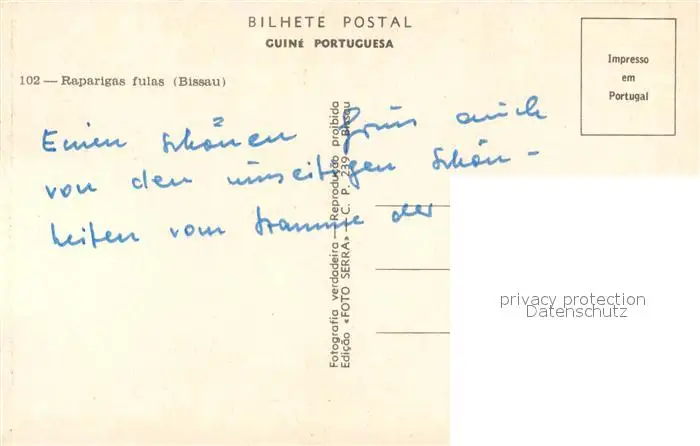 BILHETE POSTAL
GUINÉ PORTUGUESA
102 — Raparigas fulas (Bissau)
Impresso
em
Portugal
Einen schönen Gruss auch
von den umseitigen Schön-
heiten vom Stamme der
Fotografia verdadeira — Reprodução proibida
Edição «FOTO SERRA» — C. P. 239 — Bissau
privacy protection
Datenschutz